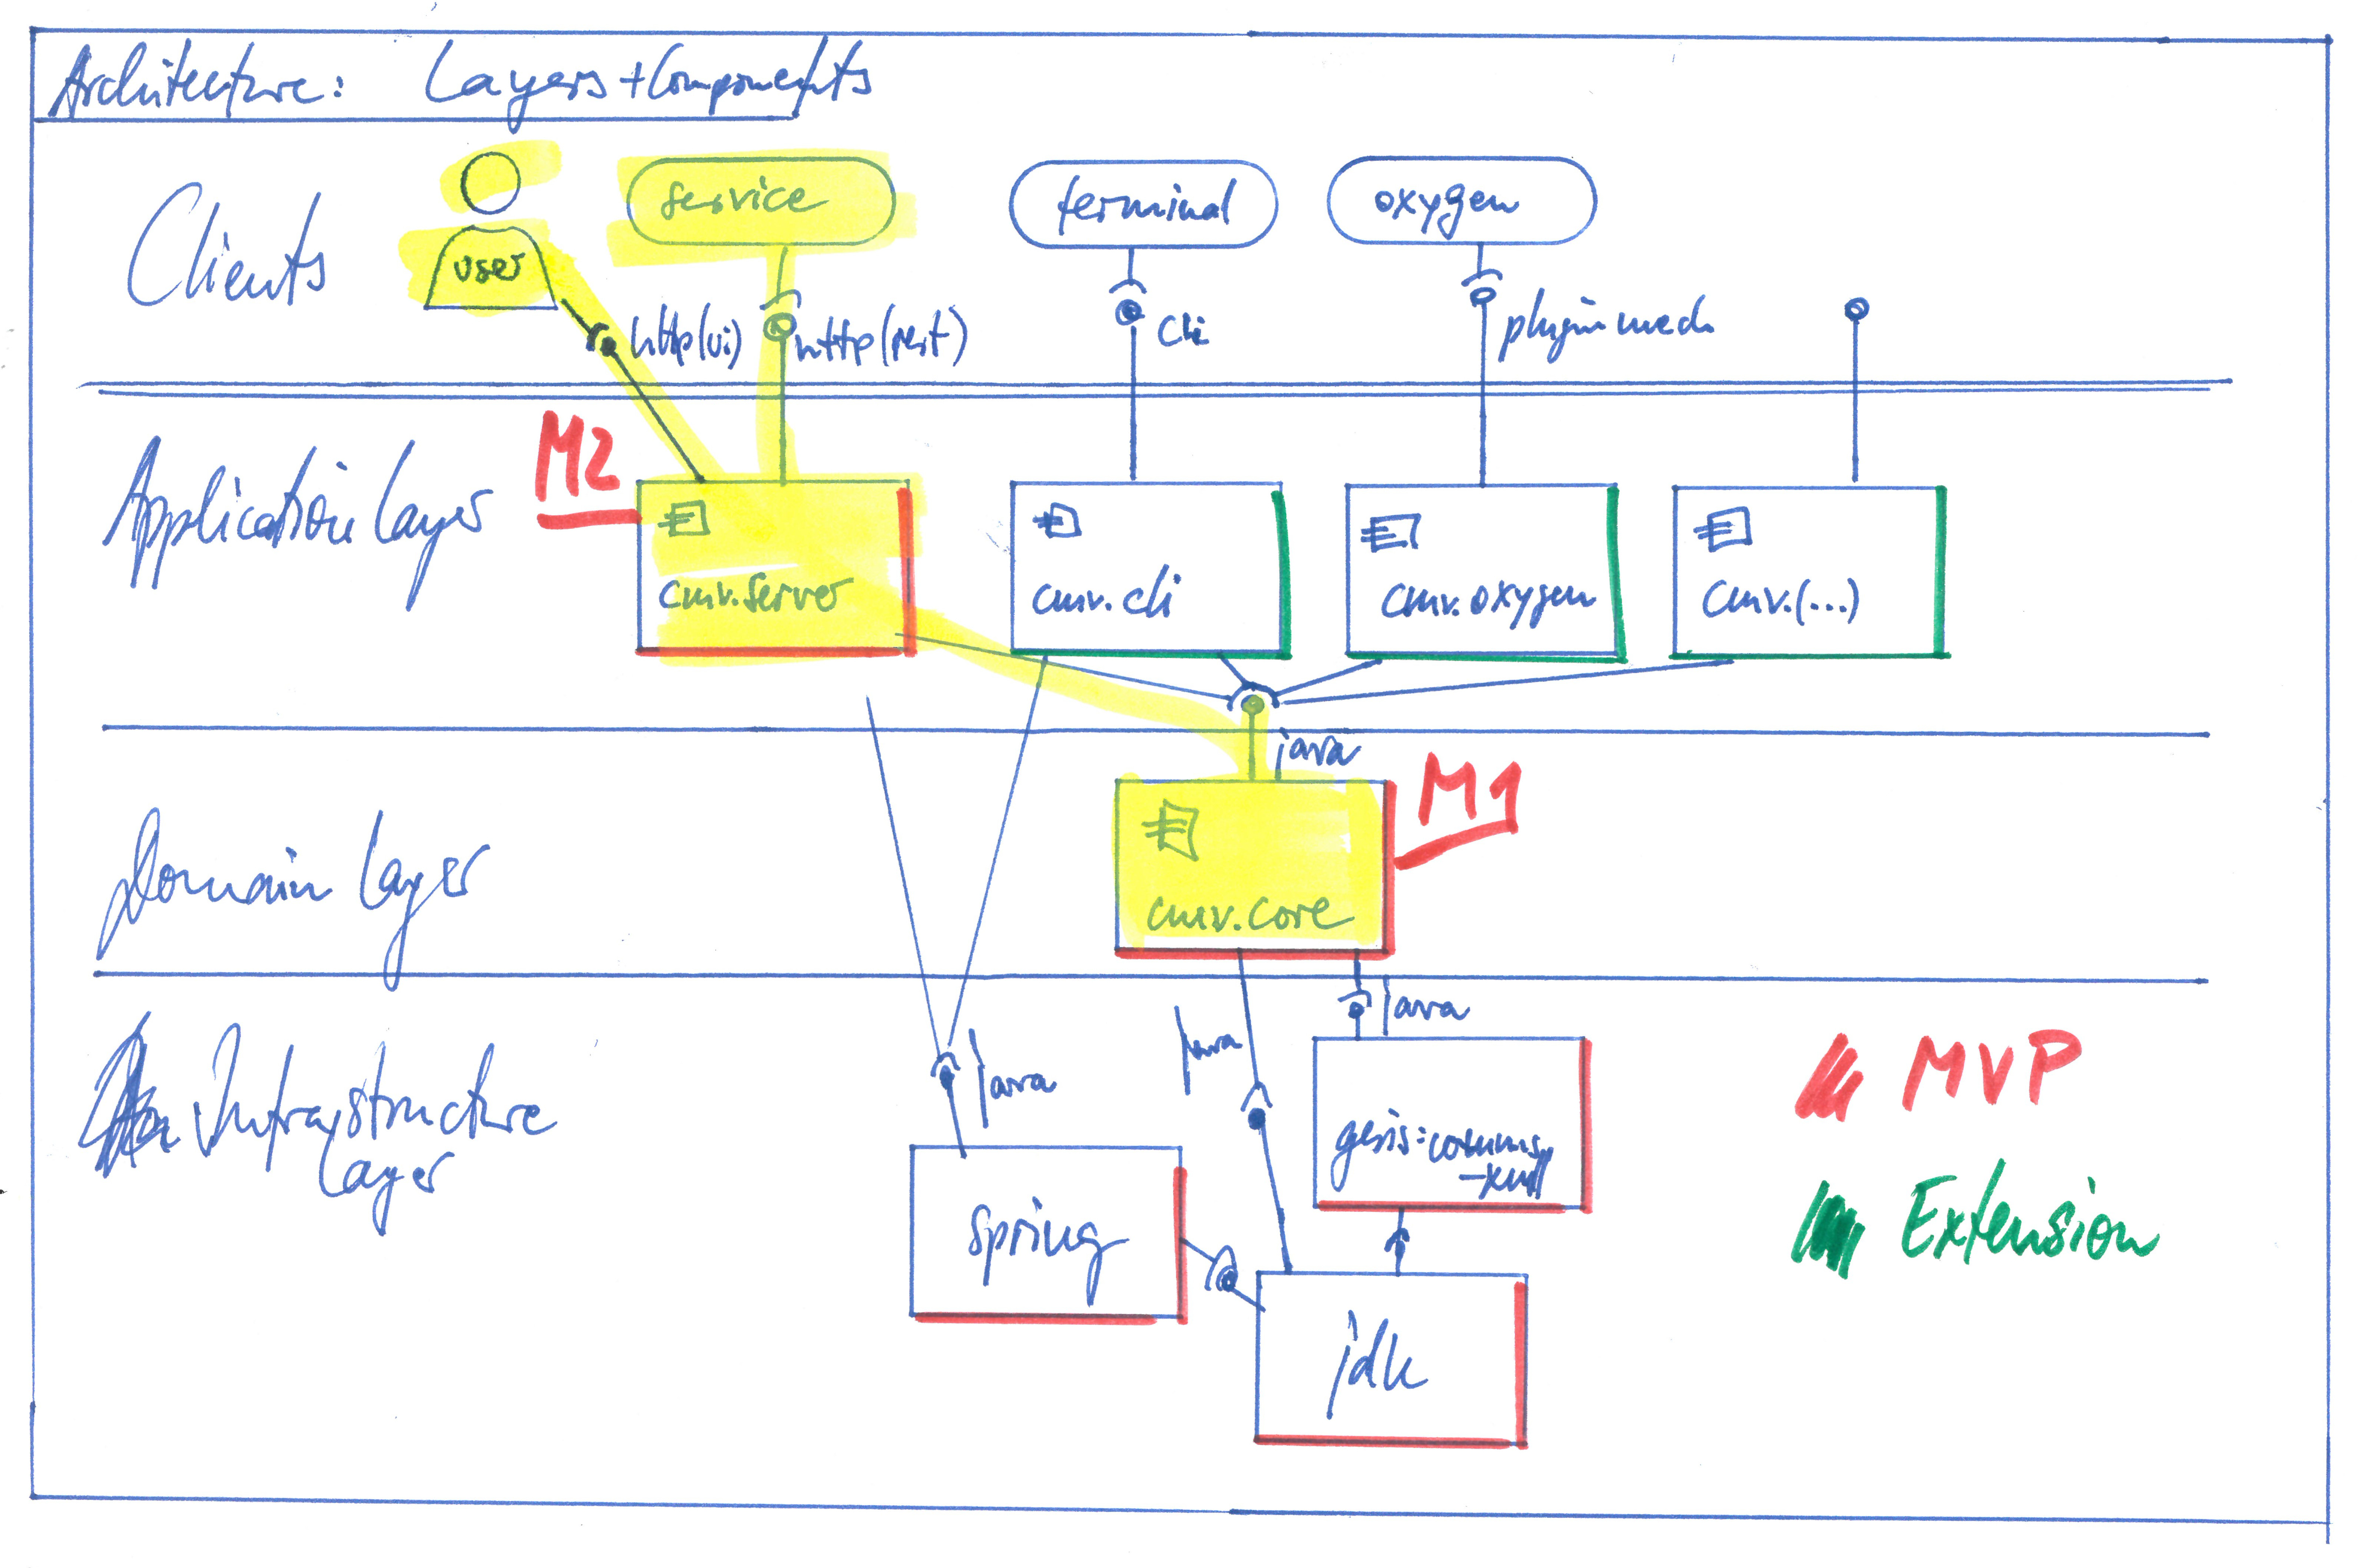 Architecture: Layers + Components
Clients
user
service
terminal
oxygen
http(ui)
http(rest)
Cli
plugin mech.
Application Layer
M2
cmv.server
cmv.cli
cmv.oxygen
cmv.(...)
java
Domain Layer
M1
cmv.core
Infrastructure
Layer
java
java
java
gesis:commons
-xml
spring
jdk
MVP
Extension